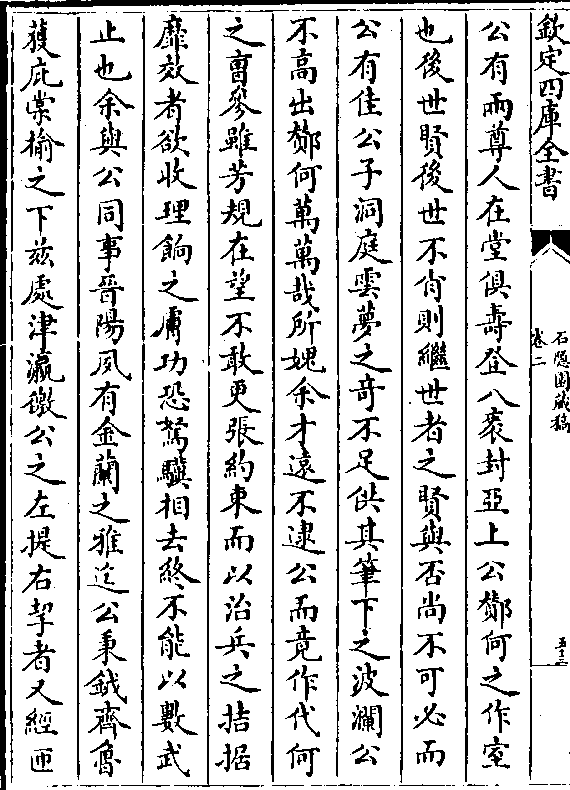 欽定四庫全書
石隠園藏稿
卷二
五十三
公有兩尊人在堂俱壽登八袠封亞上公酇何之作室
也後世賢後世不肖則繼世者之賢與否尚不可必而
公有佳公子洞庭雲夢之竒不足供其筆下之波瀾公
不高出酇何萬萬哉所媿余才遠不逮公而竟作代何
之曹參雖芳規在望不敢更張約束而以治兵之拮据
靡效者欲收理餉之膚功恐駑驥相去終不能以數武
止也余與公同事晉陽夙有金蘭之雅迄公秉鉞齊魯
獲庇棠榆之下兹處津瀛徼公之左提右挈者又經匝